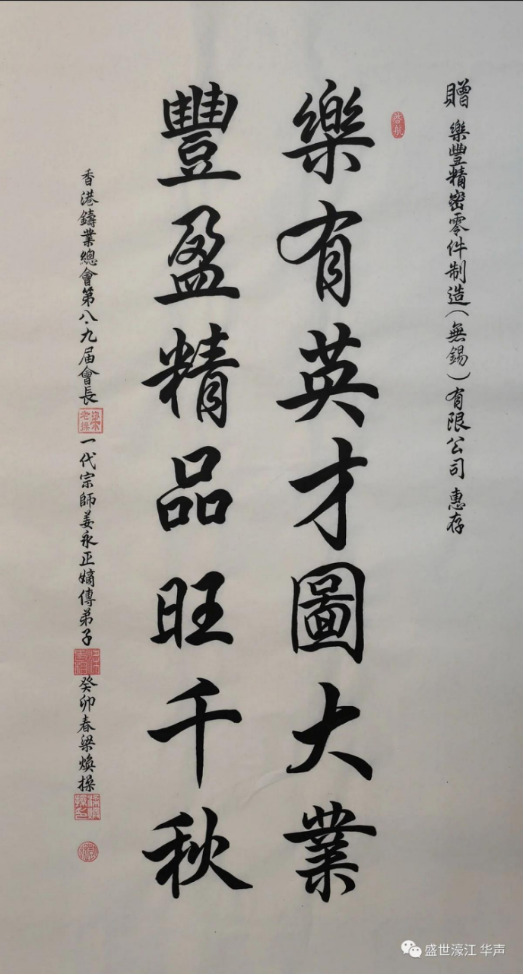 贈 樂豐精密零件制造(無錫)有限公司 惠存
樂有英才圖大業
豐盈精品旺千秋
香港鑄業總會第八·九届會長 一代宗師姜永正嫡傳弟子 癸卯春梁煥操
盛世濠江 华声